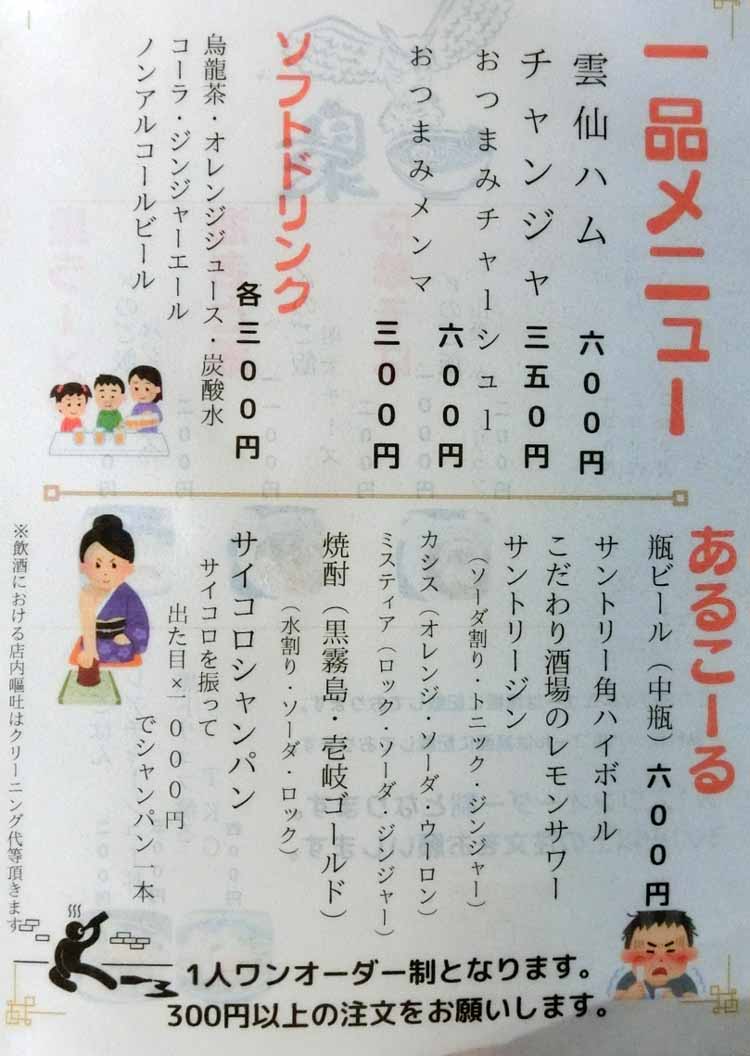 一品メニュー
雲仙ハム 六００円
チャンジャ 三五０円
おつまみチャーシュー 六００円
おつまみメンマ 三００円
ソフトドリンク 各三００円
烏龍茶・オレンジジュース・炭酸水
コーラ・ジンジャーエール
ノンアルコールビール
あるこーる
瓶ビール（中瓶）六００円
サントリー角ハイボール
こだわり酒場のレモンサワー
サントリージン
（ソーダ割り・トニック・ジンジャー）
カシス（オレンジ・ソーダ・ウーロン）
ミスティア（ロック・ソーダ・ジンジャー）
焼酎（黒霧島・壱岐ゴールド）
（水割り・ソーダ・ロック）
サイコロシャンパン
サイコロを振って
出た目×一０００円
でシャンパン一本
※飲酒における店内嘔吐はクリーニング代等頂きます
1人ワンオーダー制となります。
300円以上の注文をお願いします。